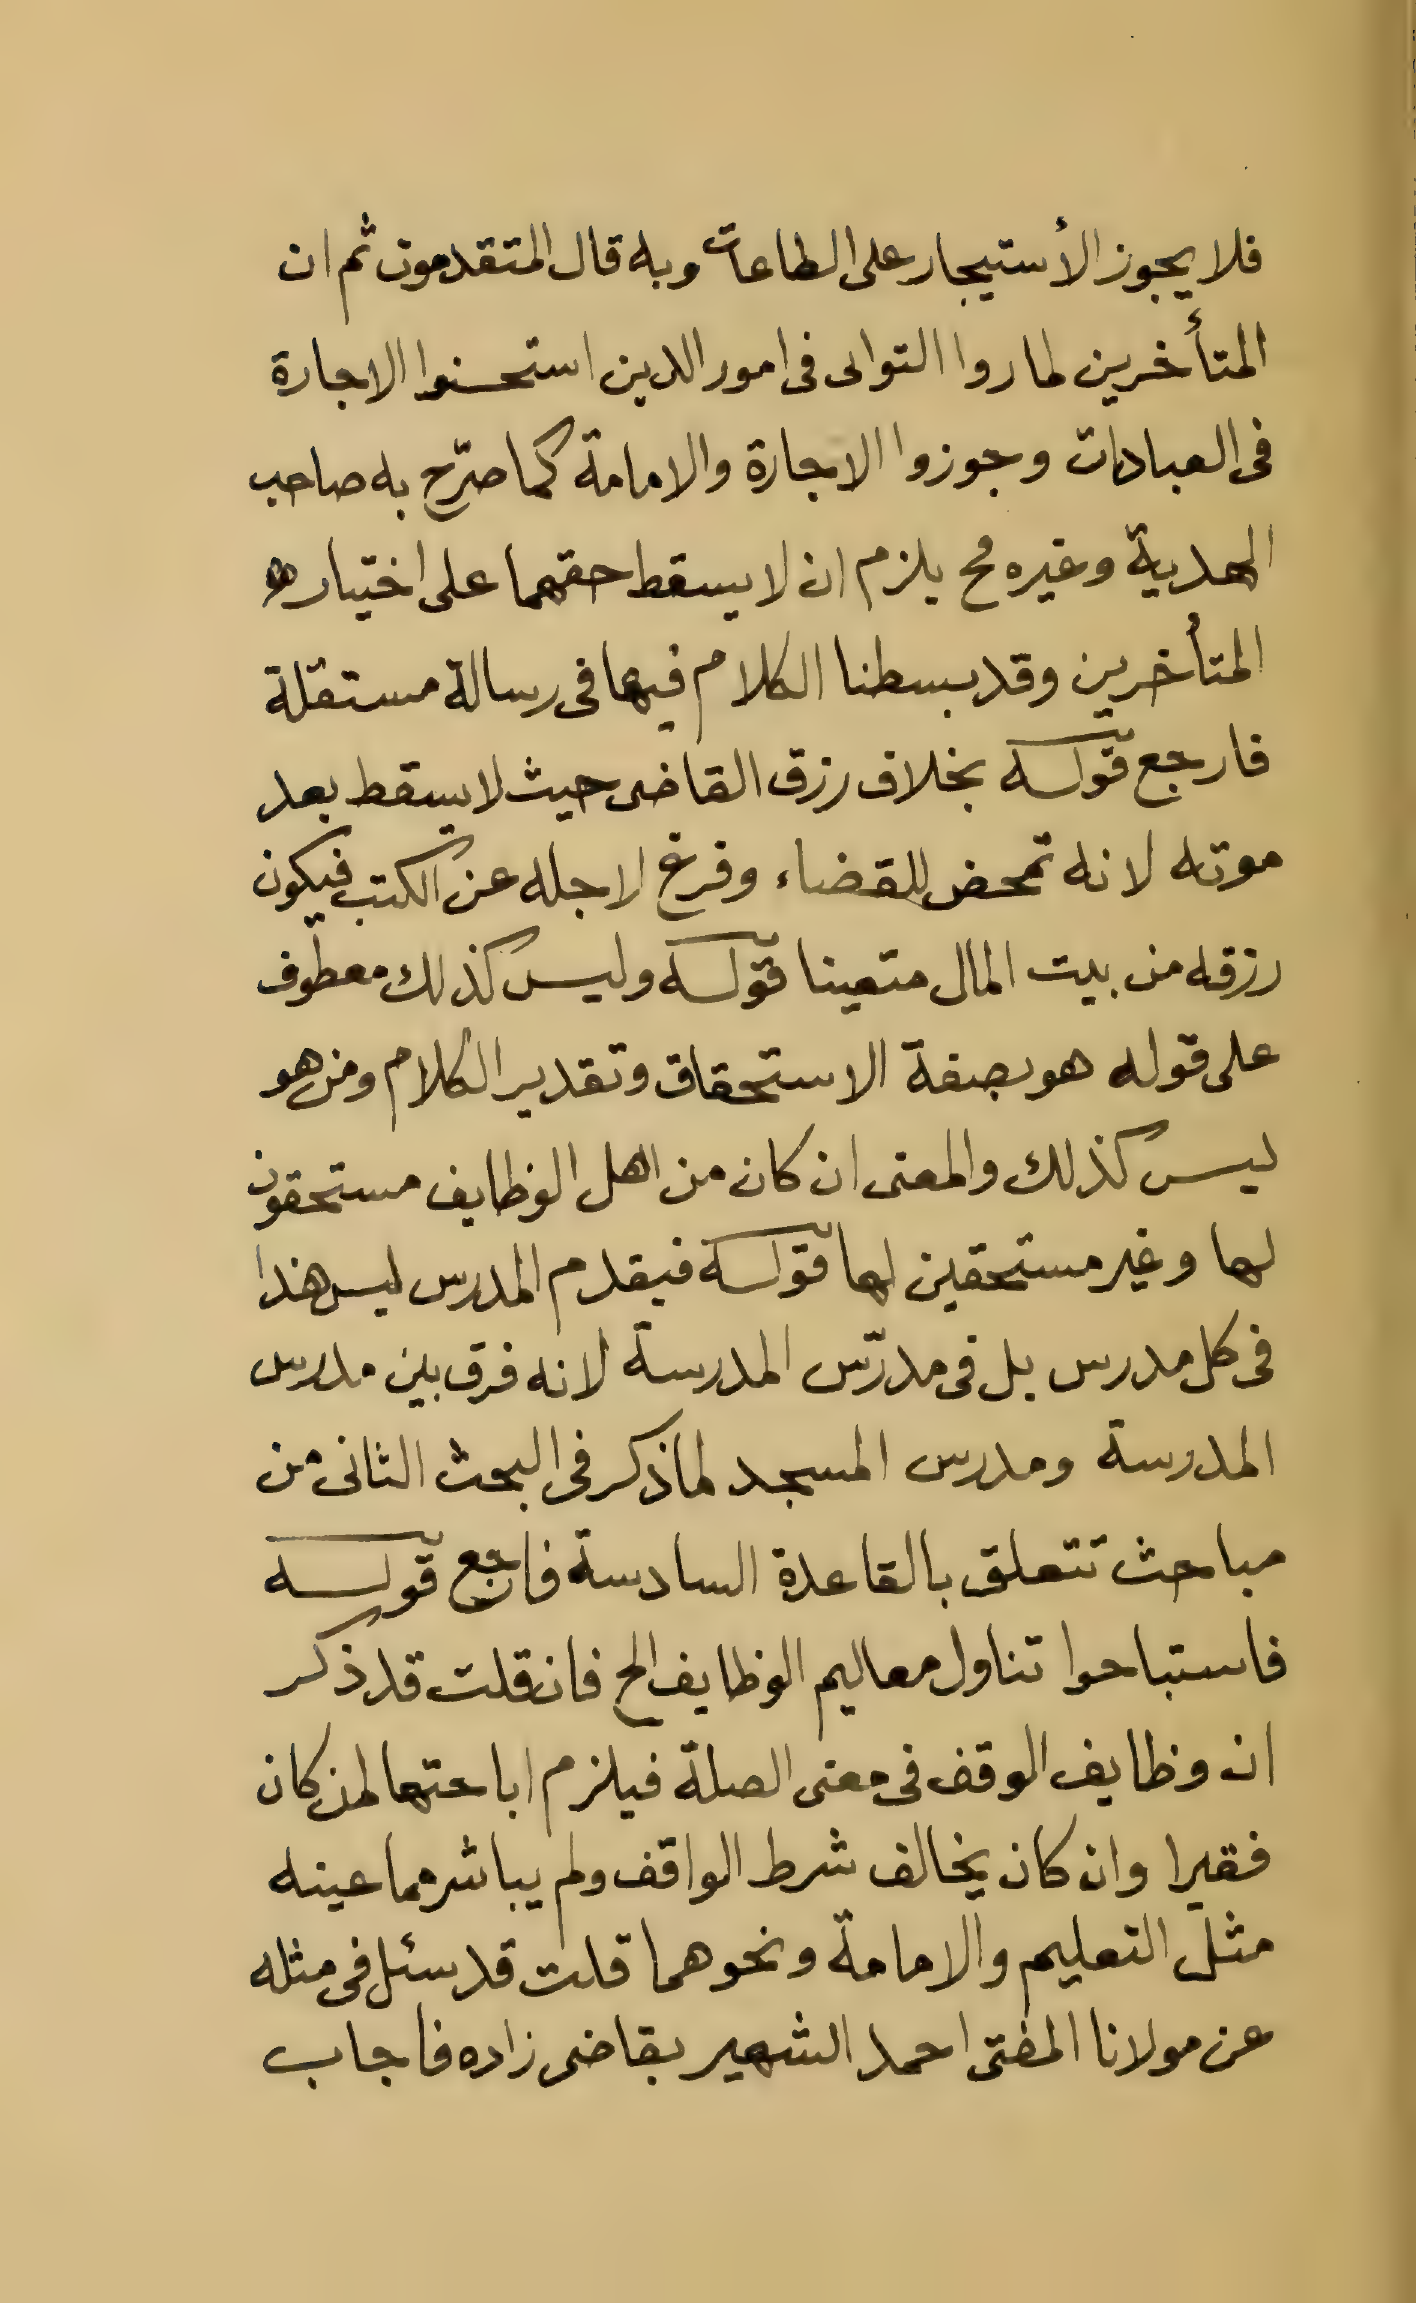 فلا يجوز الأستيجار على الطاعات وبه قال المتقدمون ثم ان
المتأخرين لما روا التوانى فى امور الدين استحسنوا الاجارة
فى العبادات وجوزوا الاجارة والامامة كما صرّح به صاحب
الهدية وغيره فح يلزم ان لا يسقط حقهما على اختيار
المتأخرين وقد بسطنا الكلام فيها فى رسالة مستقلة
فارجع قوله بخلاف رزق القاضى حيث لا يسقط بعد
موته لانه تمحض للقضاء وفرغ لاجله عن الكتب فيكون
رزقه من بيت المال متعينا قوله وليس كذلك معطوف
على قوله هو بصفة الاستحقاق وتقدير الكلام ومن هو
ليس كذلك والمعنى ان كان من اهل الوظايف مستحقون
لها وغير مستحقين لها قوله فيقدم المدرس ليس هذا
فى كل مدرس بل فى مدرّس المدرسة لانه فرق بين مدرس
المدرسة ومدرس المسجد لما ذكر فى البحث الثانى من
مباحث تتعلق بالقاعدة السادسة فارجع قوله
فاستباحوا تناول معاليم الوظايف الخ فان قلت قد ذكر
ان وظايف الوقف فى معنى الصلة فيلزم اباحتها لمن كان
فقيرا وان كان يخالف شرط الواقف ولم يباشر مما عينه
مثل التعليم والامامة ونحوهما قلت قد سئل فى مثله
عن مولانا المفتى احمد الشهير بقاضى زاده فاجاب